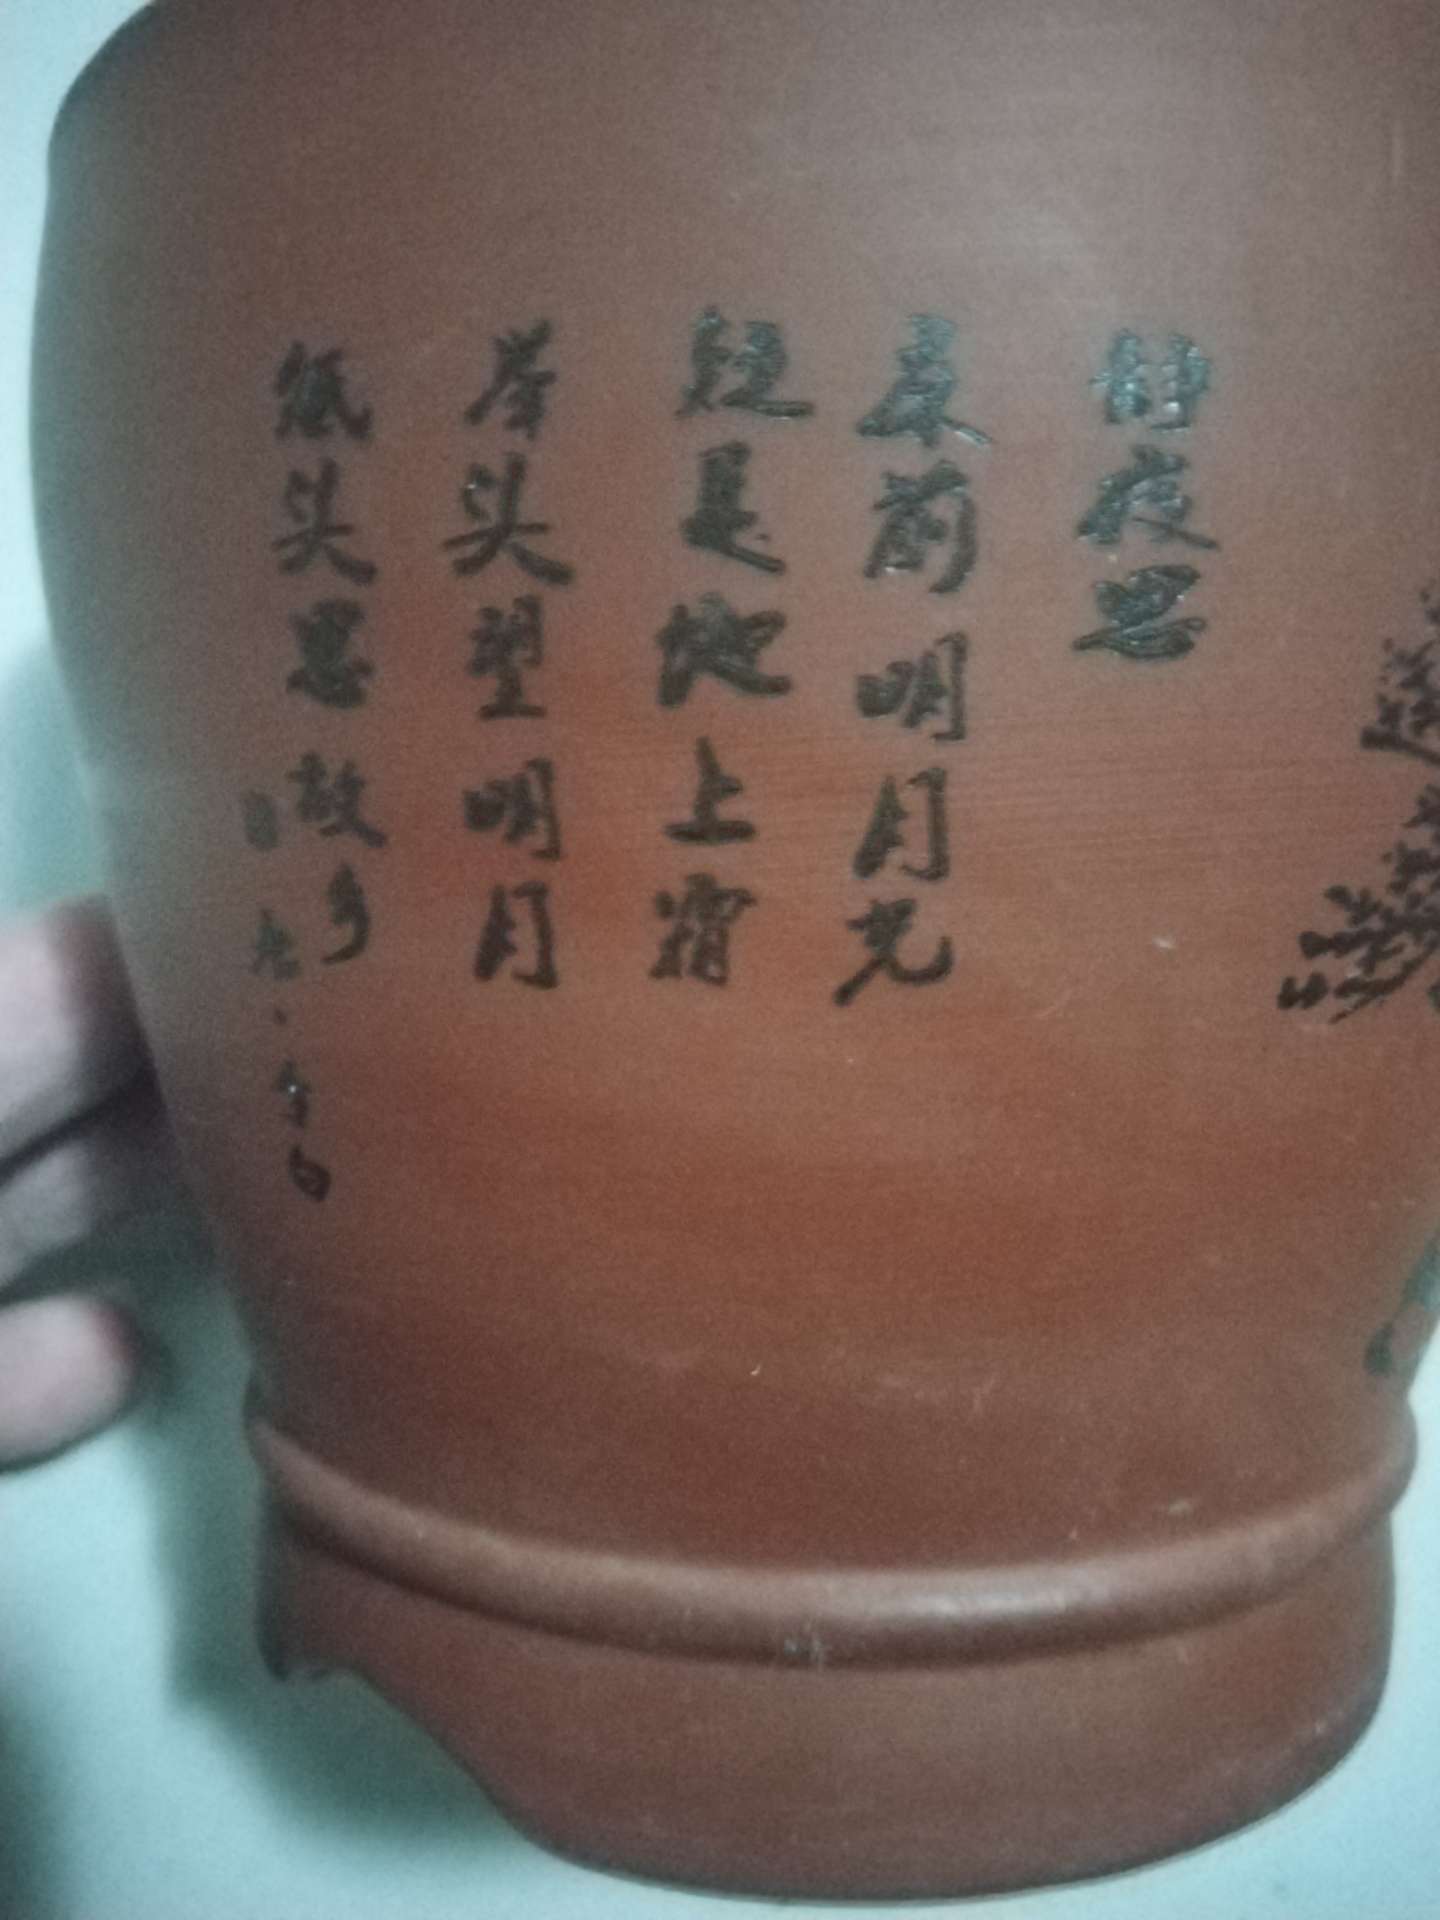 静夜思
床前明月光
疑是地上霜
举头望明月
低头思故乡
唐、李白